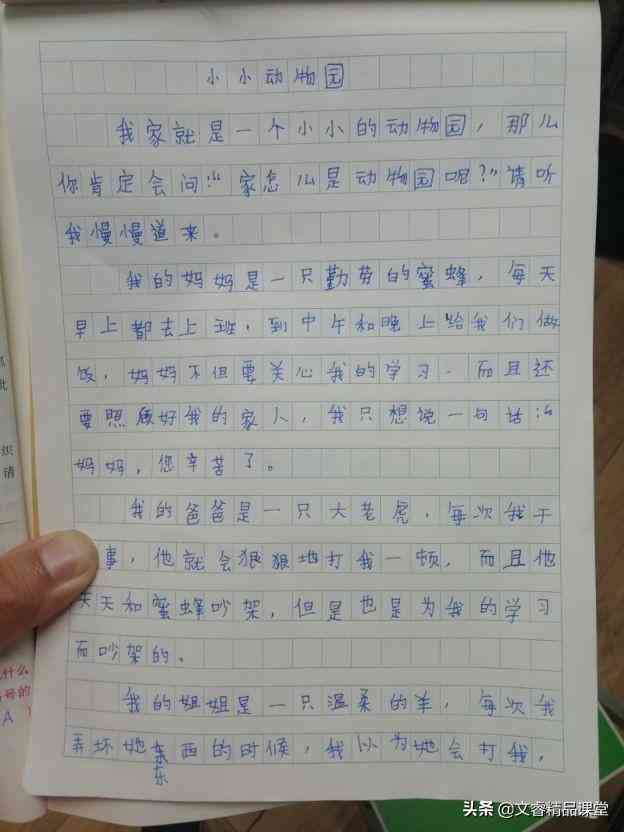 小小动物园
我家就是一个小小的动物园，那么
你肯定会问：“家怎么是动物园呢？”请听
我慢慢道来。
我的妈妈是一只勤劳的蜜蜂，每天
早上都去上班，到中午和晚上给我们做
饭，妈妈不但要关心我的学习．而且还
要照顾好我的家人，我只想说一句话：
妈妈，您辛苦了。
我的爸爸是一只大老虎，每次我干
事，他就会狠狠地打我一顿，而且他
天天和蜜蜂吵架，但是也是为我的学习
而吵架的。
我的姐姐是一只温柔的羊，每次我
弄坏她东西的时候，我以为她会打我，
东
什么
号的
A
织
清
批
头条 @文睿精品课堂